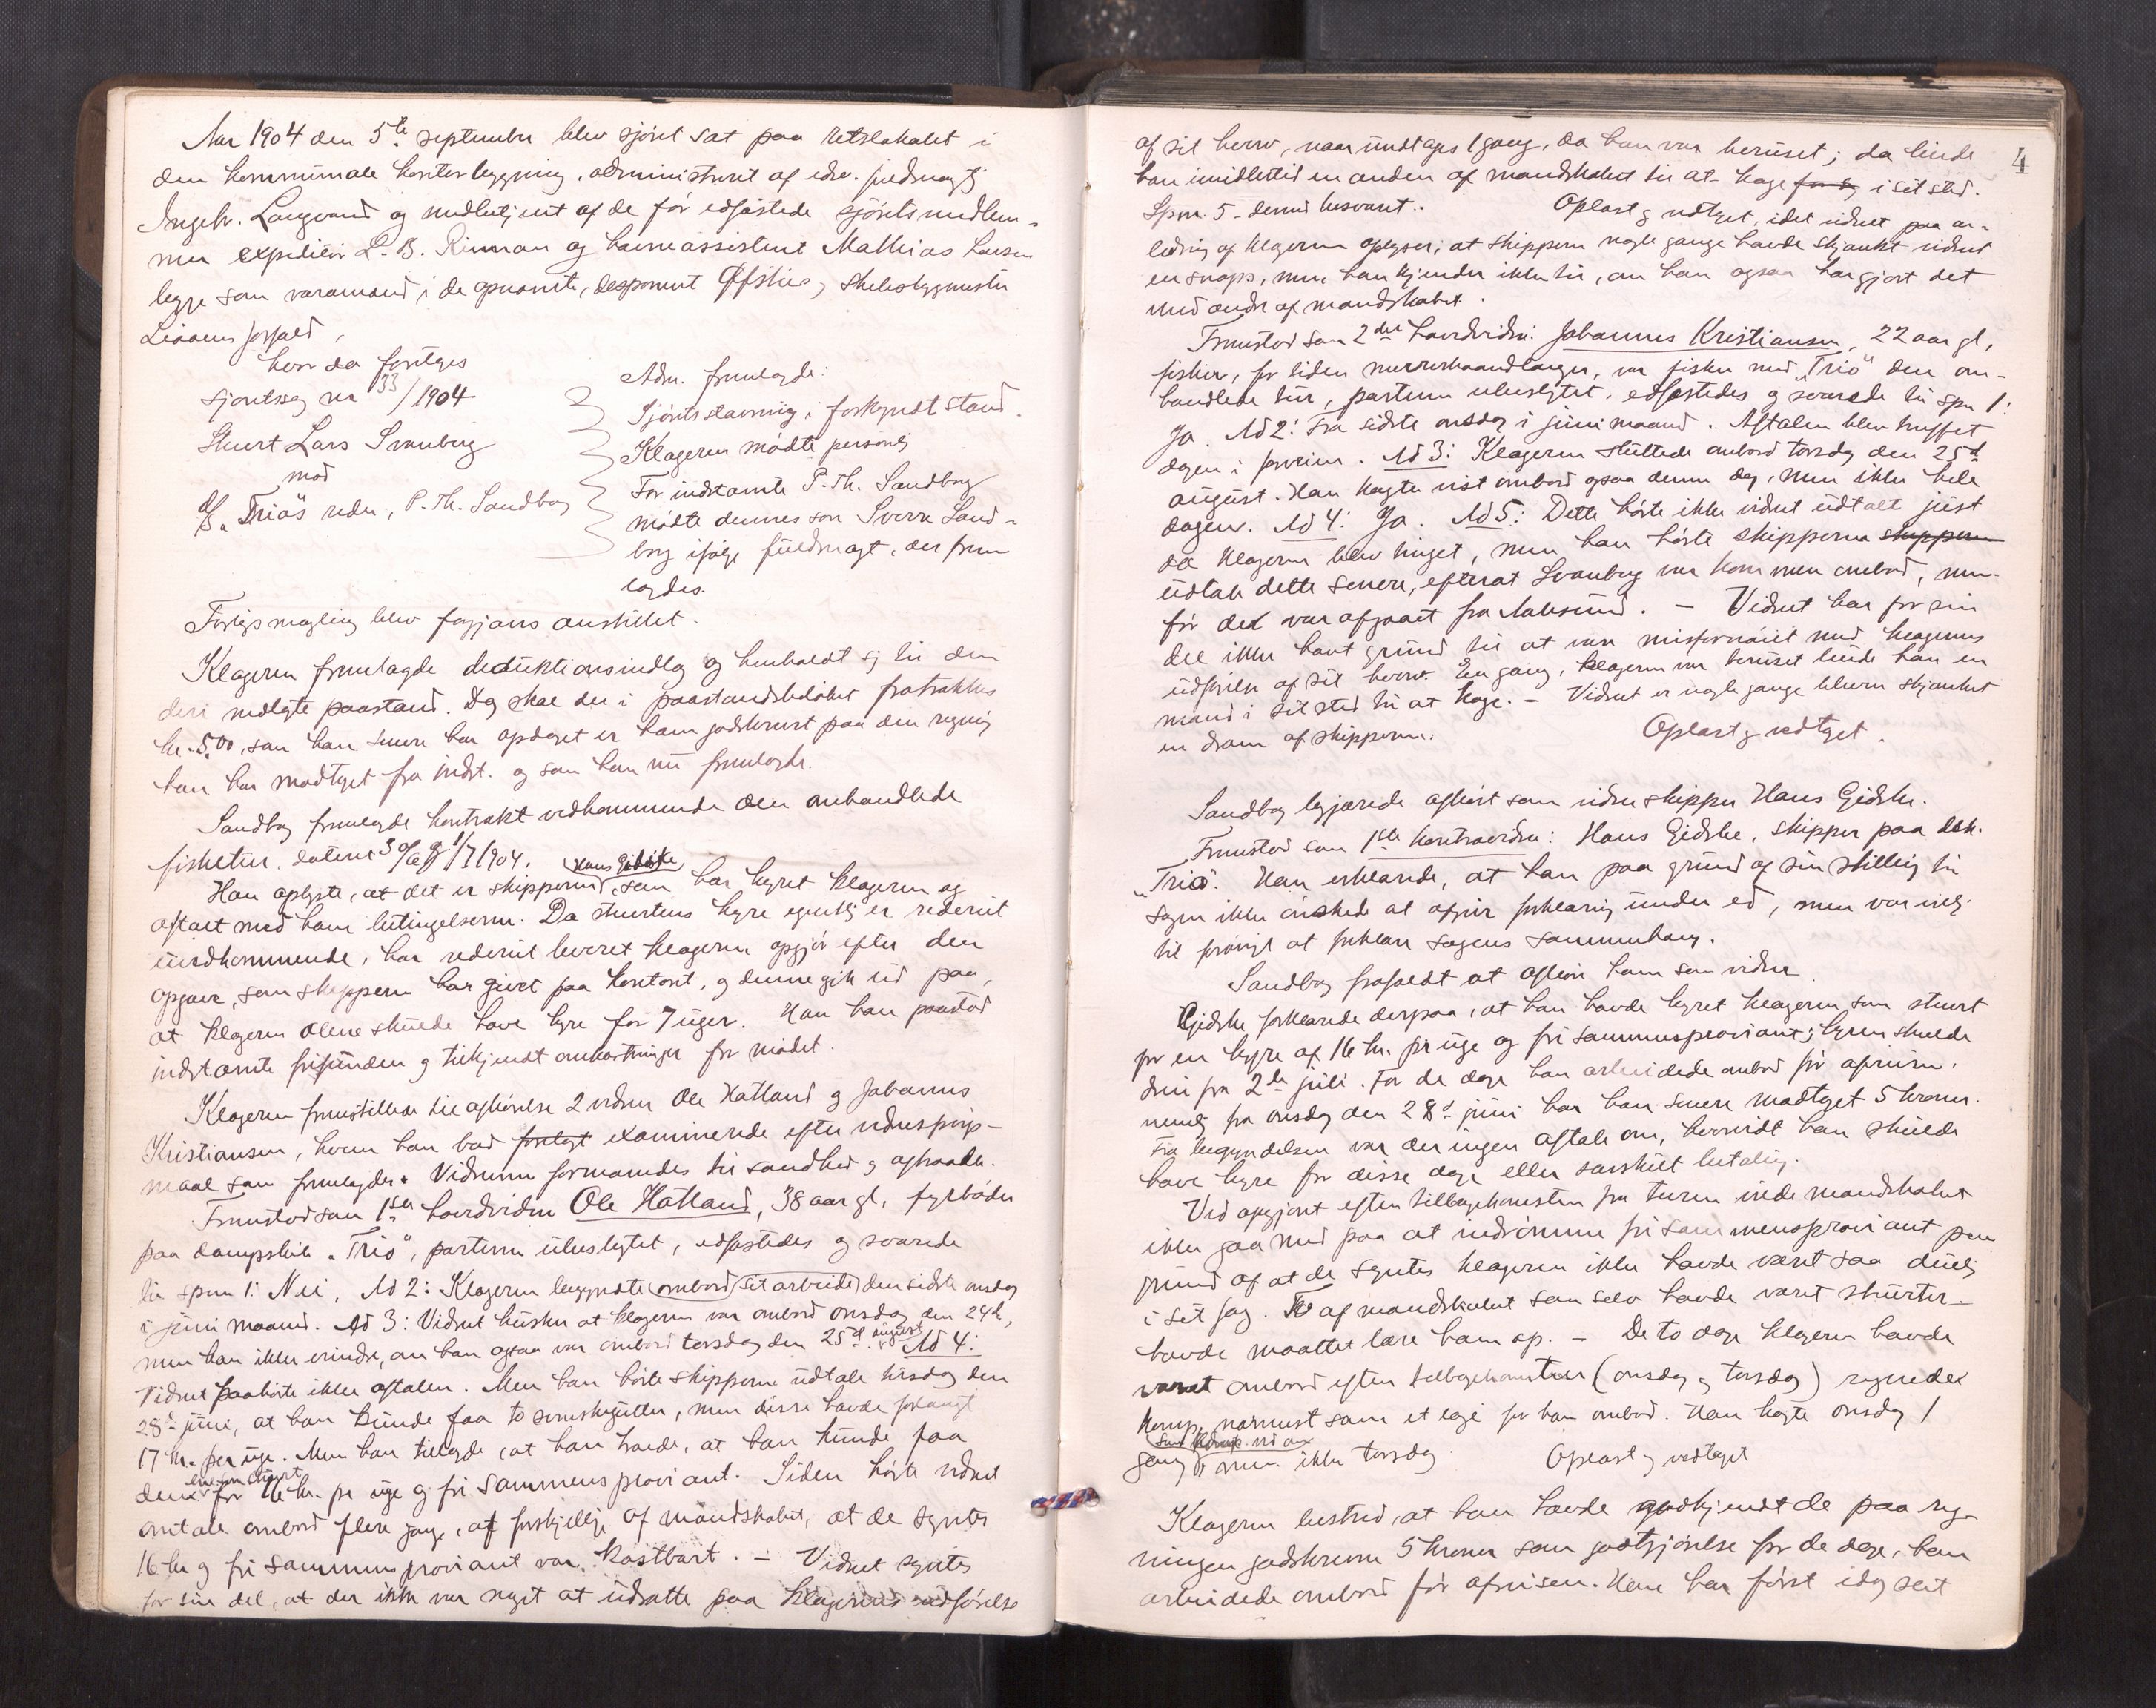 Aar 1904 den 5te september blev sjöret sat paa retslokalet i
den kommunale kontorbygning, administreret af edsv. fuldmægtig
Ingebr. Langvand og medbetjent af de før edfæstede sjöretsmedlem-
mer expeditør L. B. Rinnan og havneassistent Mathias Larsen
begge som varamænd i de opnævnte, disponent Öfsties og skibsbygmester
forfald,
hvor da foretoges
sjøretssag nr 33/1904
Stuert Lars Svanberg
mod
d/s "Trio"s reder, P. Th. Sandborg
Adm. fremlagde:
Sjöretsstævning i forkyndt stand.
Klageren mødte personlig
For indstævnte P. Th. Sandborg
mødte dennes søn Sverre Sand-
borg ifølge fuldmagt, der frem
lagdes.
Forligsmægling blev forgjæves anstillet.
Klageren fremlagde deduktionsindlæg og henholdt sig til den
deri nedlagte paastand. Dog skal der i paastandsbeløbet fratrækkes
kr. 5.00, som han senere har opdaget er ham godskrevet paa den regning
han har modtaget fra indst. og som han nu fremlagde.
Sandborg fremlagde kontrakt vedkommende den omhandlede
fisketur, dateret 30/6 og 1/7 1904.
Han oplyste, at det er skipperen, Hans Gidske, som har hyret klageren og
aftalt med ham betingelserne. Da stuertens hyre egentlig er rederiet
uvedkommende, har rederiet leveret klageren opgjør efter den
opgave, som skipperen har givet paa kontoret, og denne gik ud paa,
at klageren alene skulde have hyre for 7 uger. Han paastod
indstævnte frifunden og tilkjendt omkostninger for mødet.
Klageren fremstillede til afhørelse 2 vidner Ole Hatland og Johannes
Kristiansen, hvem han bad forelagt examinerede efter vidnespørgs-
maal som fremlagdes. Vidnerne formanedes til sandhed og aftraadte.
Fremstod som 1ste hovedvidne Ole Hatland, 38 aar gl, fyrbøder
paa dampskib "Trio", parterne ubeslægtet, edfæstedes og svarede
til spm 1: Nei, Ad 2: Klageren begyndte ombord sit arbeide den sidste onsdag
i juni maaned. Ad 3: Vidnet husker at klageren var ombord onsdag den 24d,
men kan ikke erindre, om han ogsaa var ombord torsdag den 25d august. Ad 4:
Vidnet paahørte ikke aftalen. Men han hørte skipperen udtale tirsdag den
28d juni, at han kunde faa to svenskegutter, men disse havde forlangt
17 kr. per uge. Men han tilføde, at han troede, at han kunde faa
den for 16 kr. pr uge og fri sammensproviant. Siden hørte vidnet
omtale ombord flere gange, af forskjellige af mandskabet, at de syntes
16 kr og fri sammensproviant var kostbart. – Vidnet syntes
for sin del, at der ikke var noget at udsætte paa klagerens udførelse
4
af sit hverv, naar undtages 1 gang, da han var beruset; da leiede
han imidlertid en anden af mandskabet til at koge for sig i sit sted.
Spm. 5 - dermed besvaret. Oplæst og vedtaget, idet vidnet paa an-
ledning af klageren oplyser, at skipperen nogle gange havde skjænket vidnet
en snaps, men han kjender ikke til, om han ogsaa har gjort det
med andre af mandskabet.
Fremstod som 2det hovedvidne: Johannes Kristiansen, 22 aar gl,
fisker, for tiden murerhaandlanger, var fisker med "Trio" den om-
handlede tur, parterne ubeslægtet, edfæstedes og svarede til spm 1:
Ja. Ad 2: Fra sidste onsdag i juni maaned. Aftalen blev truffet
dagen i forveien. Ad 3: Klageren sluttede ombord torsdag den 25d
august. Han kogte vist ombord ogsaa denne dag, men ikke hele
dagen. Ad 4: Ja. Ad 5: Dette hørte ikke vidnet udtalt just
da klageren blev tinget, men han hørte skipperen skipperen
udtale dette senere, efterat Svanberg var kommen ombord, men
før det var afgaaet fra Aalesund. – Vidnet har for sin
del ikke havt grund til at være misfornøiet med klagerens
udførelse af sit hverv. En gang, klageren var beruset leiede han en
mand i sit sted til at koge. – Vidnet er nogle gange bleven skjænket
en dram af skipperen. Oplæst og vedtaget.
Sandborg begjærede afhørt som vidne skipper Hans Gidske.
Fremstod som 1ste kontravidne: Hans Gidske, skipper paa dsk.
"Trio". Han erklærede, at han paa grund af sin stilling til
sagen ikke ønskede at afgive forklaring under ed, men var villig
til forøvrigt at forklare sagens sammenhæng.
Sandborg frafaldt at afhøre ham som vidne.
Gidske forklarede derpaa, at han havde hyret klageren som stuert
for en hyre af 16 kr. pr uge og fri sammensproviant; hyren skulde
løbe fra 2de juli. For de dage han arbeidede ombord før afreisen,
nemlig fra onsdag den 28d juni har han senere modtaget 5 kroner.
Fra begyndelsen var der ingen aftale om, hvorvidt han skulde
have hyre for disse dage eller særskilt betaling.
Ved opgjøret efter tilbagekomsten fra turen vilde mandskabet
ikke gaa med paa at indrømme fri sammensproviant paa
grund af at de syntes klageren ikke havde været saa duelig
i sit fag. To af mandskabet som selv havde været stuerter
havde maattet lære ham op. – De to dage klageren havde
været ombord efter tilbagekomsten (onsdag og torsdag) regnedes
komp. nærmest som et logi for ham ombord. Han kogte onsdag 1
gang, men ikke torsdag Oplæst og vedtaget
Klageren bestred, at han havde godkjendt de paa reg-
ningen godskrevne 5 kroner som godtgjørelse for de dage, han
arbeidede ombord før afreisen. Han har først idag seet